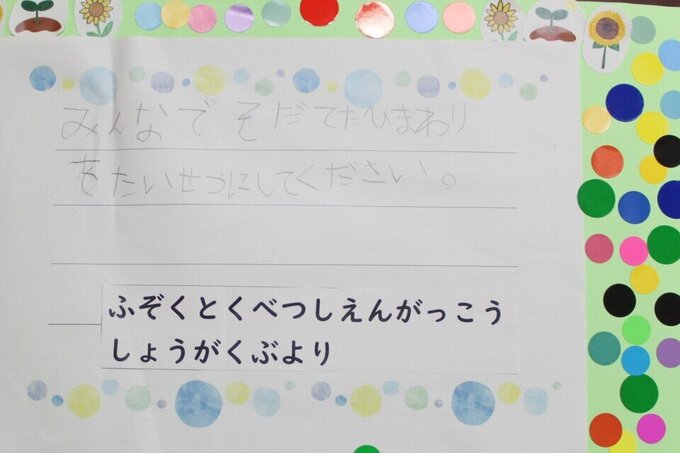 みんなでそだてたひまわり
をたいせつにしてください。
ふぞくとくべつしえんがっこう
しょうがくぶより